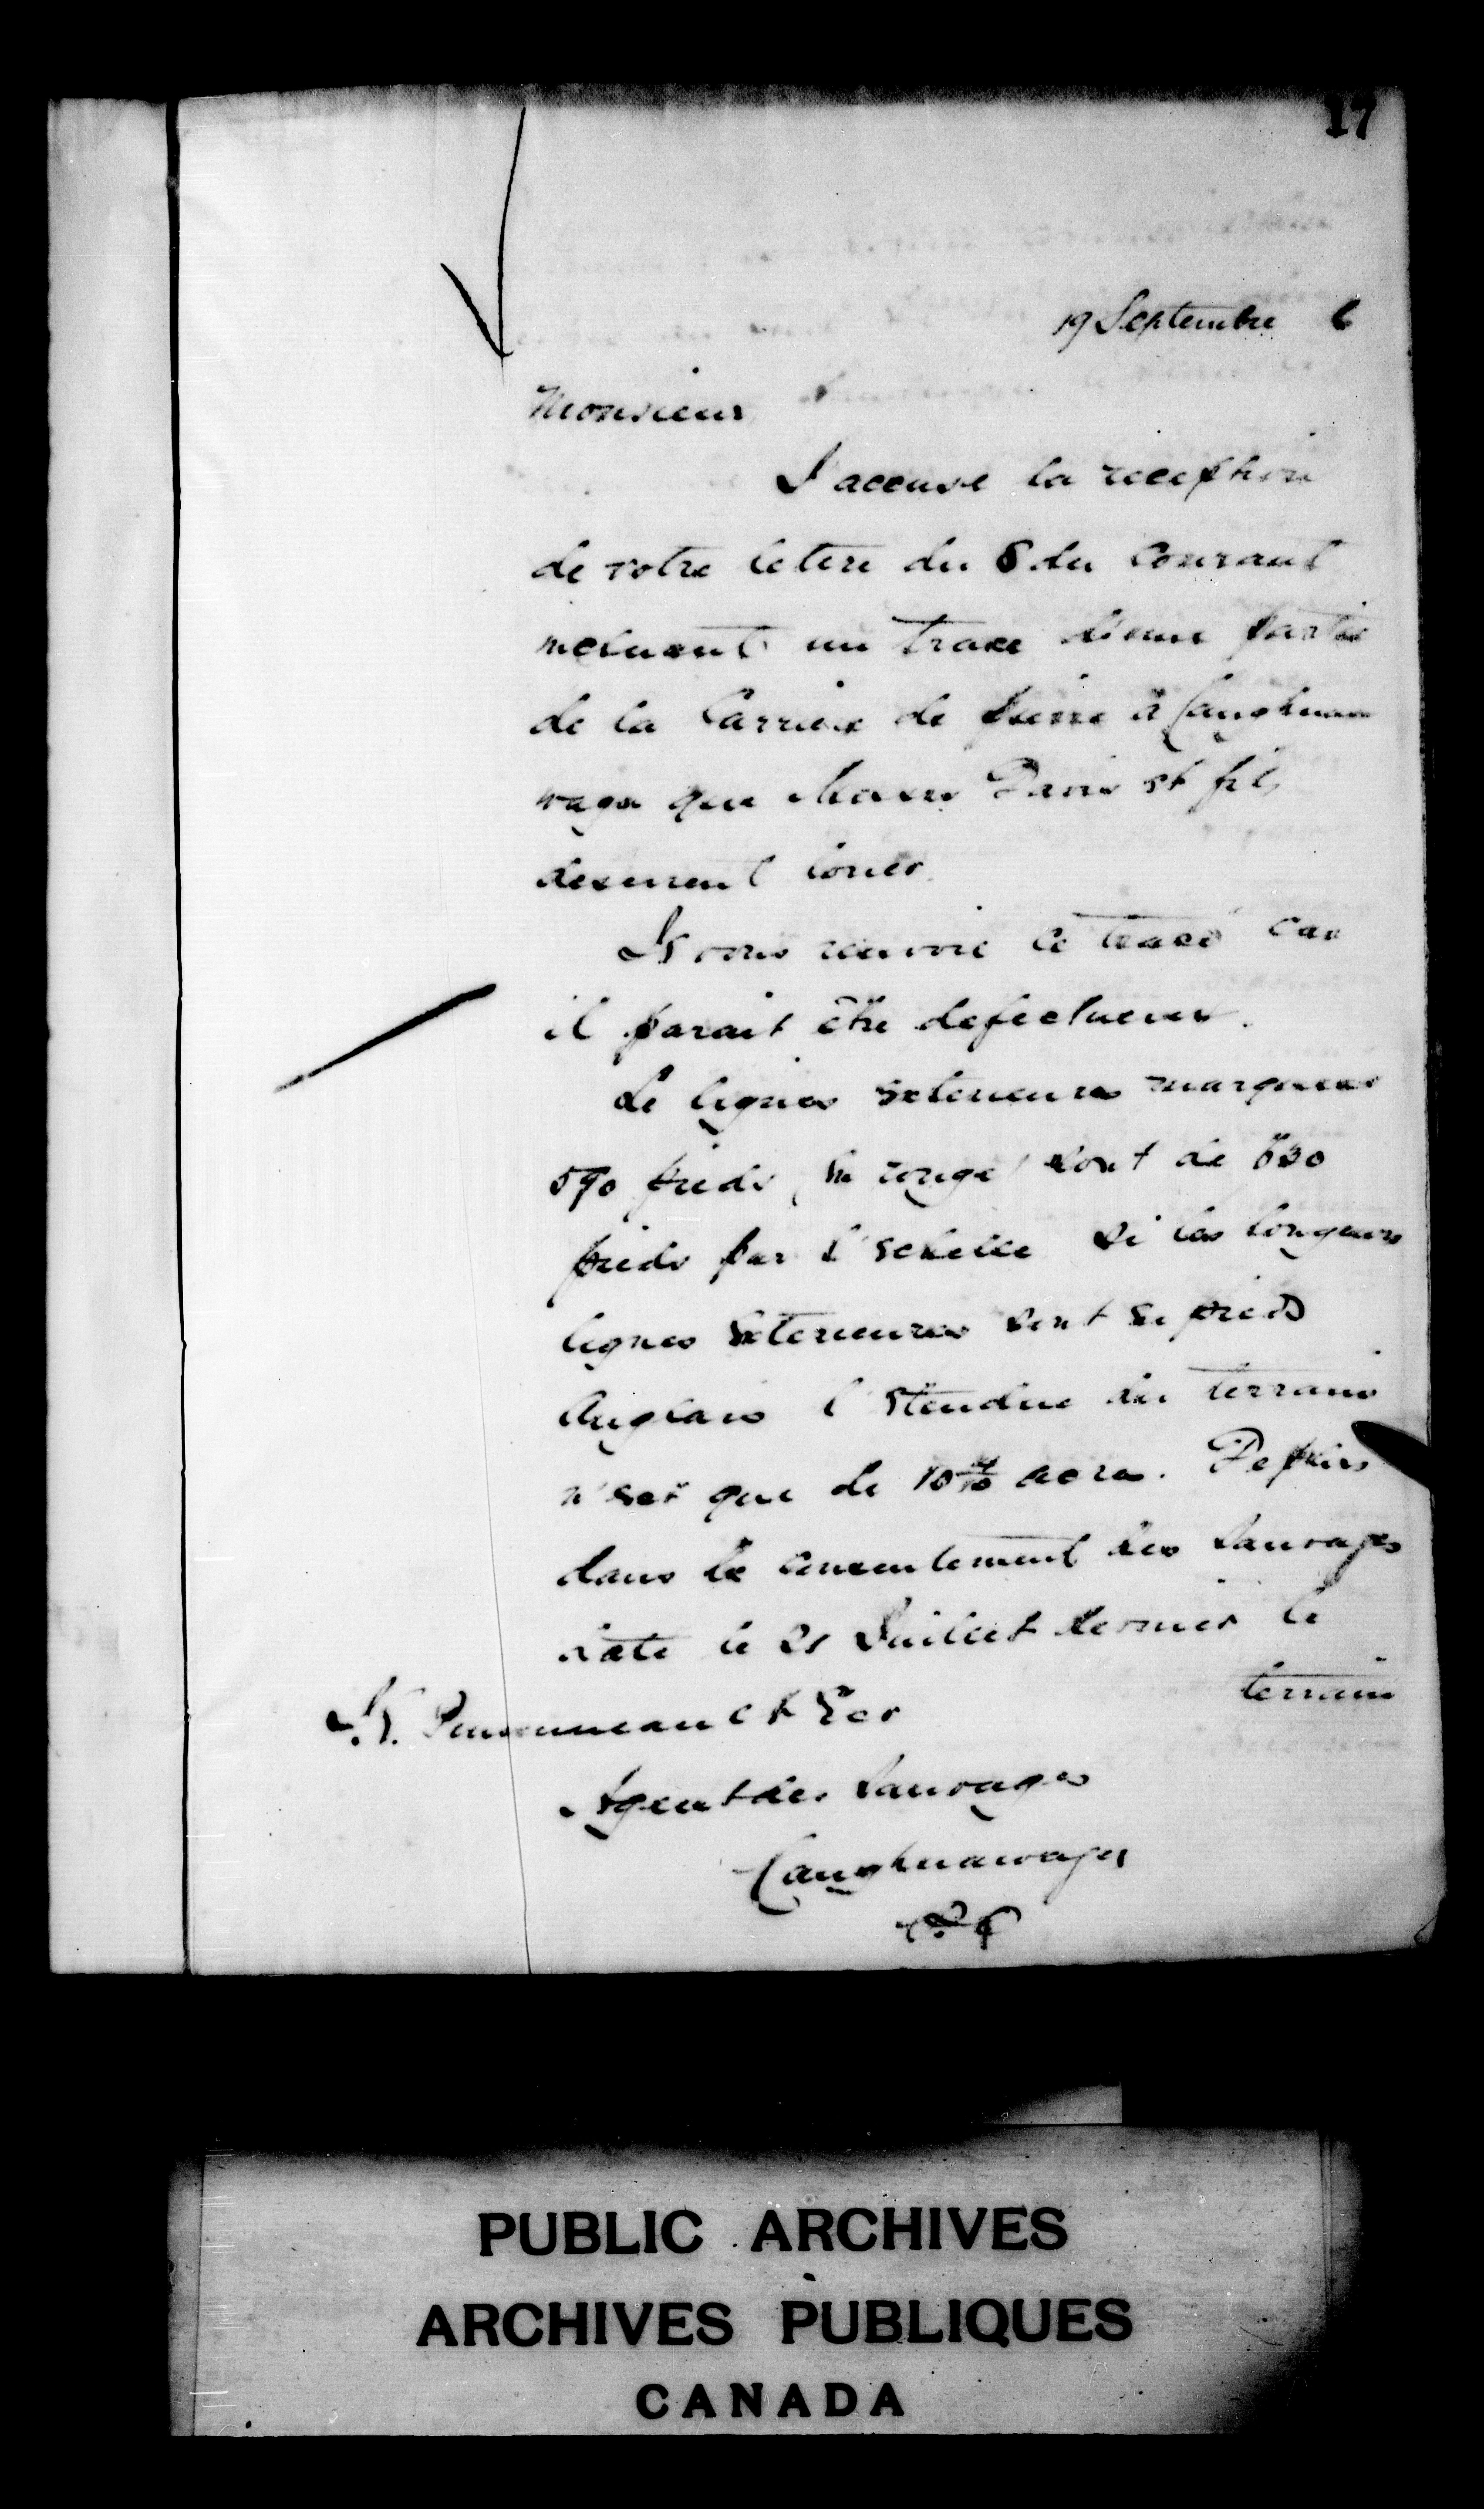 17
19 Septembre 6
Monsieur
J'accuse la reception
de votre lettre du 8 du courant
incluant un trace d'une partie
de la Carriere de pierre à Caughna
waga que Messrs Davis et fils
desirent louer.
Je vous renvoie le tracé car
il parait être defectueux.
Le lignes exterieures marquees
590 pieds, en rouge sont de
pieds par l'echelle si les longeurs
lignes exterieures sont en pieds
Anglais l'etendue du terrain
n'est que de 10 acres. De plus
dans le consentement des Sauvages
daté le 21 Juillet dernier le
terrain
Agent des Sauvages
Caughnawaga
PUBLIC ARCHIVES
ARCHIVES PUBLIQUES
CANADA